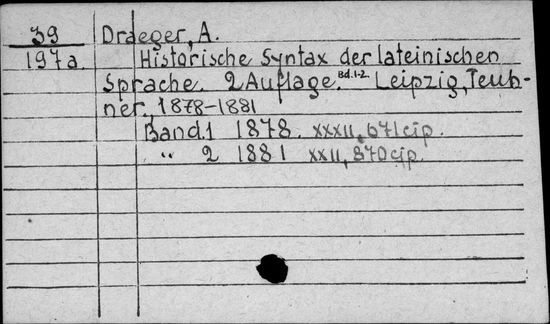 39 Draeger, A.
197a. Historische Syntax der lateinischen
Sprache. 2 Auflage. Bd. 1-2 Leipzig, Teub-
ner, 1878-1881
Band 1 1878. XXXII, 671 стр.
" 2 1881 XXII, 870 стр.